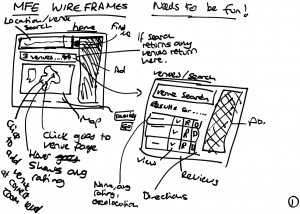 MFE WIREFRAMES
Needs to be fun!
Location/venue
Search
home
Find
If search
returns any
venues return
here.
3 venues...
Ad
venues/search
venue search
Results for ...
V R D
V R D
Ad.
Map
Click goes to
venue page
Hover
shows avg
rating
view
Reviews
Directions
Name, avg
rating,
geolocation
Click
to add venue
& correct
zoom level
1